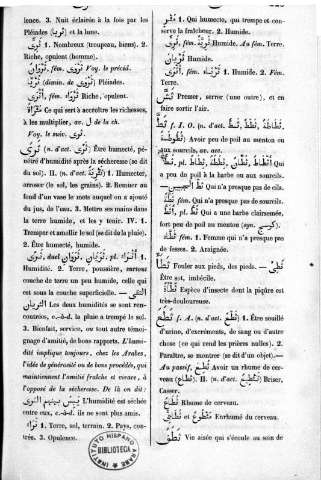 lence. 3. Nuit éclairée à la fois par les
Pléiades (ثُرَيَّا) et la lune.
ثَرِىّ 1. Nombreux (troupeau, biens). 2.
Riche, opulent (homme).
ثَرْوَانُ, fém. ثَرْوَى Voy. le précéd.
ثُرَيَّا (dimin. de ثَرْوَى) Pléiades.
أَثْرَى, fém. ثَرْوَاء Riche, opulent.
مَثْرَاةٌ Ce qui sert à accroître les richesses,
à les multiplier, av. ل de la ch.
Voy. le suiv. ثَرِىَ
ثَرِىَ (n. d'act. ثَرًى) Être humecté, pé-
nétré d'humidité après la sécheresse (se dit
du sol). II. (n. d'act. تَثْرِيَةٌ) 1. Humecter,
arroser (le sol, les grains). 2. Remuer au
fond d'un vase le mets auquel on a ajouté
du jus, de l'eau. 3. Mettre ses mains dans
la terre humide, et les y tenir. IV. 1.
Tremper et amollir le sol (se dit de la pluie).
2. Être humecté, humide.
ثَرًى, duel ثَرَيَانِ, pl. أَثْرَاء 1.
Humidité. 2. Terre, poussière, surtout
couche de terre un peu humide, celle qui
est sous la couche superficielle. — التقى
الثريان Les deux humidités se sont ren-
contrées, c.-à-d. la pluie a trempé le sol.
3. Bienfait, service, ou tout autre témoi-
gnage d'amitié, de bons rapports. L'humi-
dité implique toujours, chez les Arabes,
l'idée de générosité ou de bons procédés, qui
maintiennent l'amitié fraîche et vivace, à
l'opposé de la sécheresse. De là on dit :
يبس بينهم الثرى L'humidité est séchée
entre eux, c.-à-d. ils ne sont plus amis.
1. Terre, sol, terrain. 2. Pays, con-
trée. 3. Opulence.
1. Qui humecte, qui trempe et con-
serve la fraîcheur. 2. Humide.
Humide. Au fém.
Terre.
ثَرْيَانُ Humide.
fém. ثَرْيَاء 1. Humide. 2. Fém.
Terre.
Presser, serrer (une outre), et en
faire sortir l'air.
ثَطَّ f. I. O. (n. d'act. ثَطّ, ثَطَطٌ, ثَطَاطَةٌ,
ثُطُوطَةٌ) Avoir peu de poil au menton ou
aux sourcils, av. acc.
ثَطّ, pl. ثُطَّانٌ, أَثْطَاطٌ Qui
a peu de poil à la barbe ou aux sourcils.
— ثَطُّ الحاجبين Qui n'a presque pas de cils.
ثَطَّةٌ fém. Qui n'a presque pas de sourcils.
أَثَطُّ, pl. ثُطّ 1. Qui a une barbe clairsemée,
fort peu de poil au menton (syn. كوسج).
ثَطَّاء fém. 1. Femme qui n'a presque pas
de fesses. 2. Araignée.
ثَطَأَ Fouler aux pieds, des pieds. — ثَطِئَ
Être sot, imbécile.
ثُطْأَةٌ Espèce d'insecte dont la piqûre est
très-douloureuse.
ثَطَعَ f. A. (n. d'act. ثَطْعٌ) 1. Être souillé
d'urine, d'excréments, de sang ou d'autre
chose (ce qui rend les prières nulles). 2.
Paraître, se montrer (se dit d'un objet).—
Au passif, ثُطِعَ Avoir un rhume de cer-
veau (ثُطَاع). II. (n. d'act. تَثْطِيعٌ) Briser,
Casser.
ثُطَاعٌ Rhume de cerveau.
ثُطَاعِىّ et مَثْطُوعٌ Enrhumé du cerveau.
ثَطَفٌ Vie aisée qui s'écoule au sein de
INSTITUTO HISPANO ARABE
BIBLIOTECA